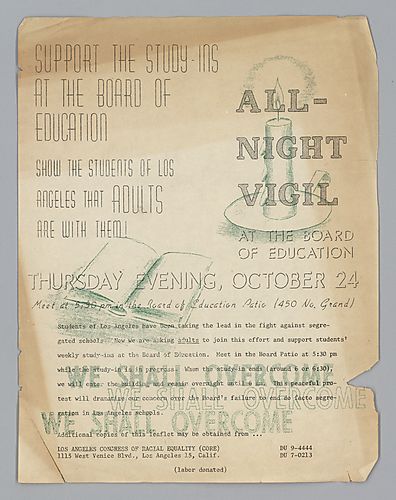 SUPPORT THE STUDY-INS
AT THE BOARD OF
EDUCATION
SHOW THE STUDENTS OF LOS
ANGELES THAT ADULTS
ARE WITH THEM!
ALL-
NIGHT
VIGIL
AT THE BOARD
OF EDUCATION
THURSDAY EVENING, OCTOBER 24
Meet at 5:30 pm in the Board of Education Patio (450 No. Grand)
Students of Los Angeles have been taking the lead in the fight against segre-
gated schools. Now we are asking adults to join this effort and support students'
weekly study-ins at the Board of Education. Meet in the Board Patio at 5:30 pm
while the study-in is in progress. When the study-in ends (around 6 or 6:30),
we will enter the building and remain overnight until 8 am. This peaceful pro-
test will dramatize our concern over the Board's failure to end de facto segre-
gation in Los Angeles schools.
WE SHALL OVERCOME
WE SHALL OVERCOME
WE SHALL OVERCOME
Additional copies of this leaflet may be obtained from ...
LOS ANGELES CONGRESS OF RACIAL EQUALITY (CORE) DU 9-4444
1115 West Venice Blvd., Los Angeles 15, Calif. DU 7-0213
(labor donated)